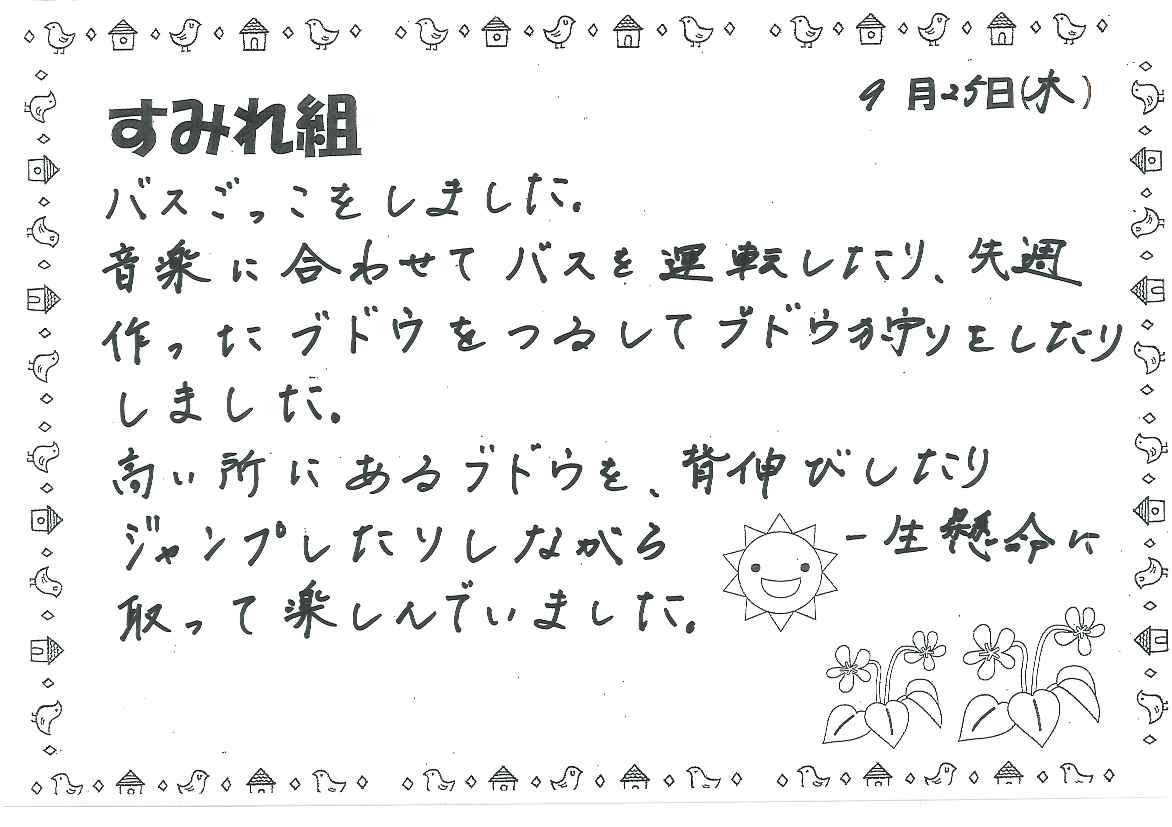 9月25日(水)
すみれ組
バスごっこをしました。
音楽に合わせてバスを運転したり、先週
作ったブドウをつるしてブドウ狩りをしたり
しました。
高い所にあるブドウを、背伸びしたり
ジャンプしたりしながら 一生懸命に
取って楽しんでいました。